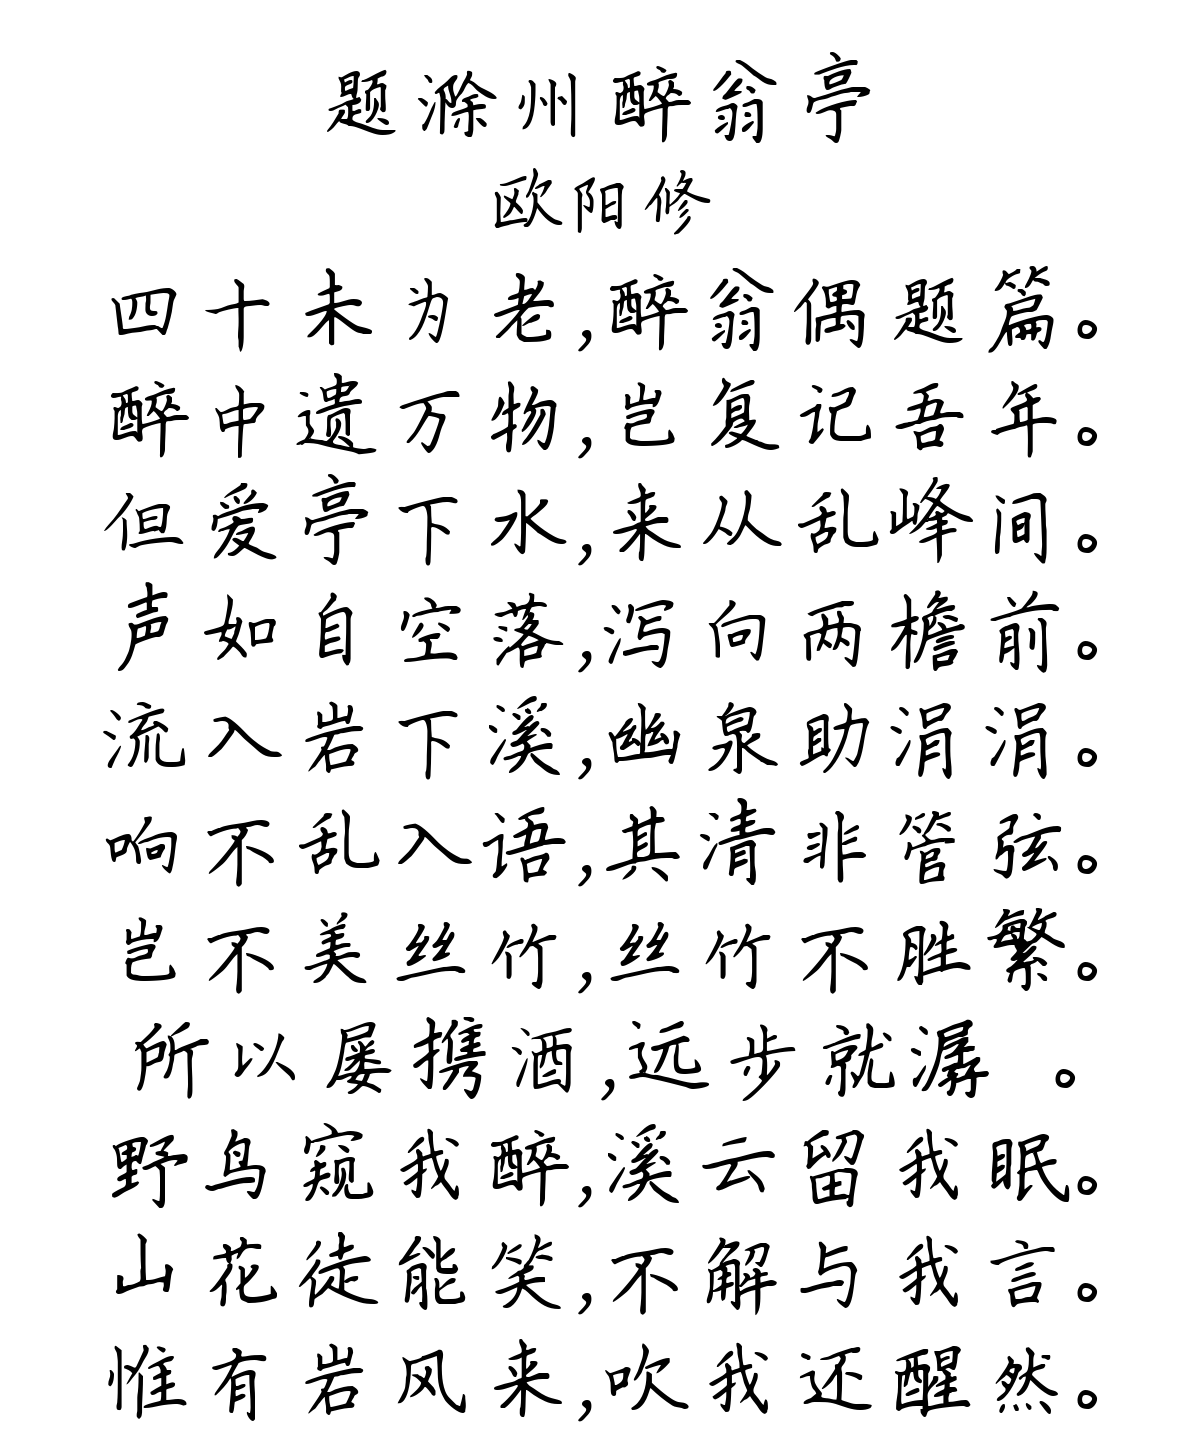 题滁州醉翁亭
欧阳修
四十未为老,醉翁偶题篇。
醉中遗万物,岂复记吾年。
但爱亭下水,来从乱峰间。
声如自空落,泻向两檐前。
流入岩下溪,幽泉助涓涓。
响不乱入语,其清非管弦。
岂不美丝竹,丝竹不胜繁。
所以屡携酒,远步就潺 。
野鸟窥我醉,溪云留我眠。
山花徒能笑,不解与我言。
惟有岩风来,吹我还醒然。